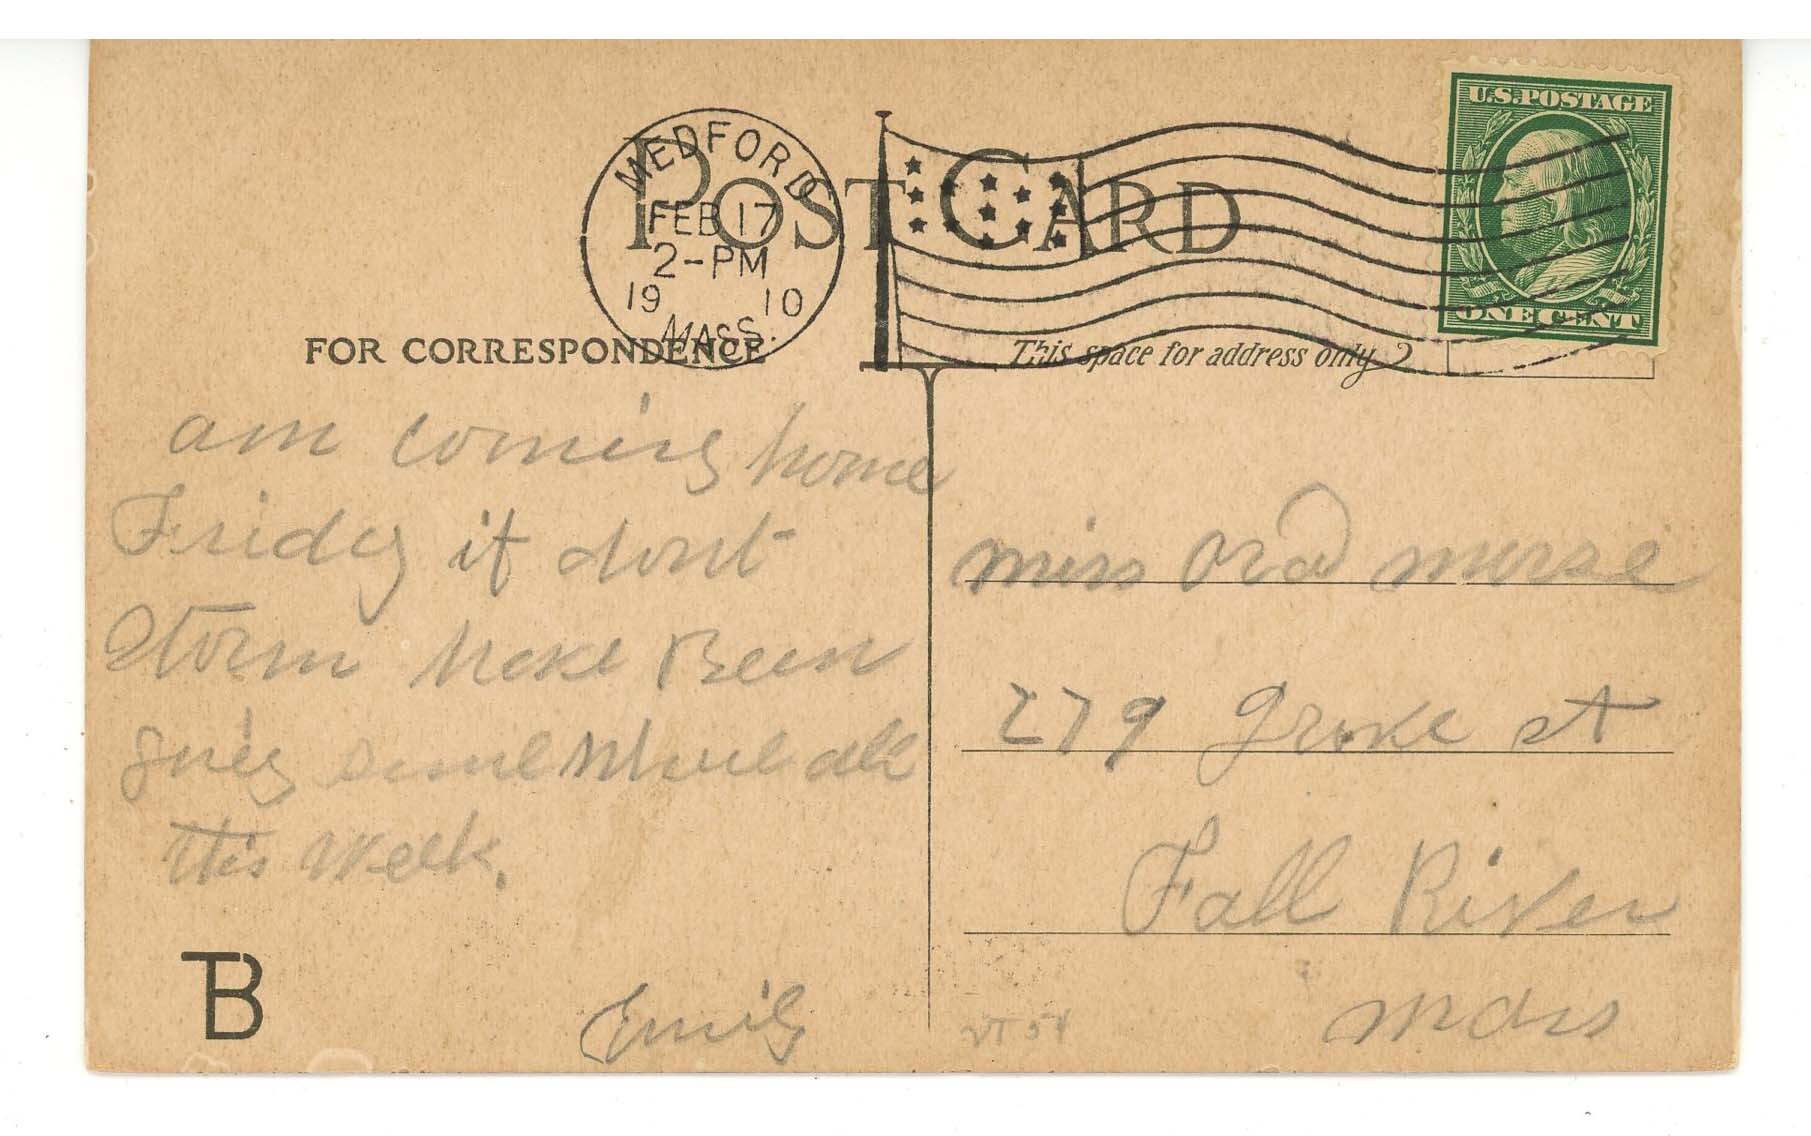 MEDFORD
FEB 17
2-PM
19 10
MASS.
POST CARD
U.S. POSTAGE
ONE CENT
FOR CORRESPONDENCE
This space for address only
am coming home
Friday if dont
Storm have Been
some where all
this week.
Emily
miss ora morse
279 grove st
Fall River
mass
TB